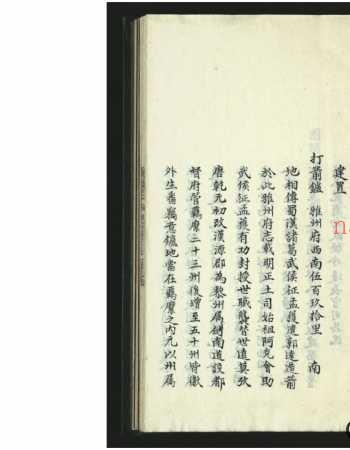 建置
打箭鑪 雅州府西南伍百玖拾里 南
地相傳蜀漢諸葛武侯征孟獲遣郭達造箭
於此雅州府志載明正土司始祖阿克會助
武侯征孟獲有功封授世職襲替世遠莫攷
唐乾元初改漢源郡為黎州屬劒南道設都
督府管羈縻二十三州後增至五十州皆徼
外生番竊意鑪地當在羈縻之內元以州屬